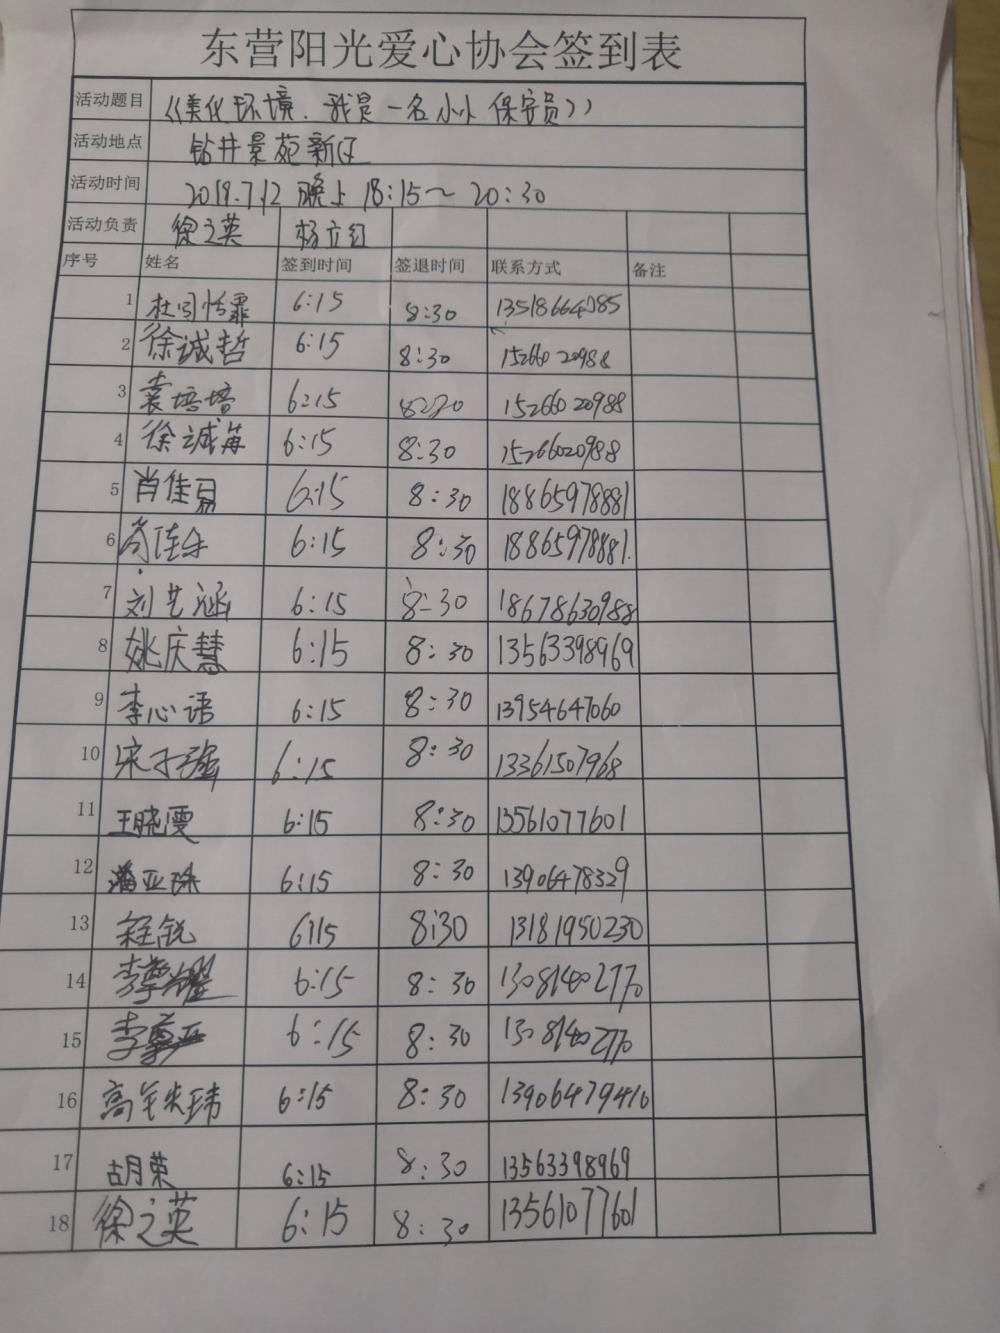 东营阳光爱心协会签到表
活动题目 《美化环境.我是一名小小保安员》
活动地点 钻井景苑新区
活动时间 2019.7.12 晚上 18:15~20:30
活动负责 徐之英 杨立红
序号 姓名 签到时间 签退时间 联系方式 备注
1 6:15 8:30 13518664085
2 徐诚哲 6:15 8:30 15266020988
3 袁培培 6:15 15266020988
4 徐诚苒 6:15 8:30 15266020988
5 肖佳易 6:15 8:30 18865978881
6 6:15 8:30 18865978881.
7 刘艺涵 6:15 8:30 18678630988
8 姚庆慧 6:15 8:30 13563398969
9 李心语 6:15 8:30 13954647060
10 宋子强 6:15 8:30 13361507968
11 王晓雯 6:15 8:30 13561077601
12 潘亚珠 6:15 8:30 13906478329
13 程锐 6:15 8:30 13181950230
14 李 6:15 8:30 13081402770
15 李 6:15 8:30 13081402770
16 高 6:15 8:30 13906479410
17 胡月荣 6:15 8:30 13563398969
18 徐之英 6:15 8:30 13561077601